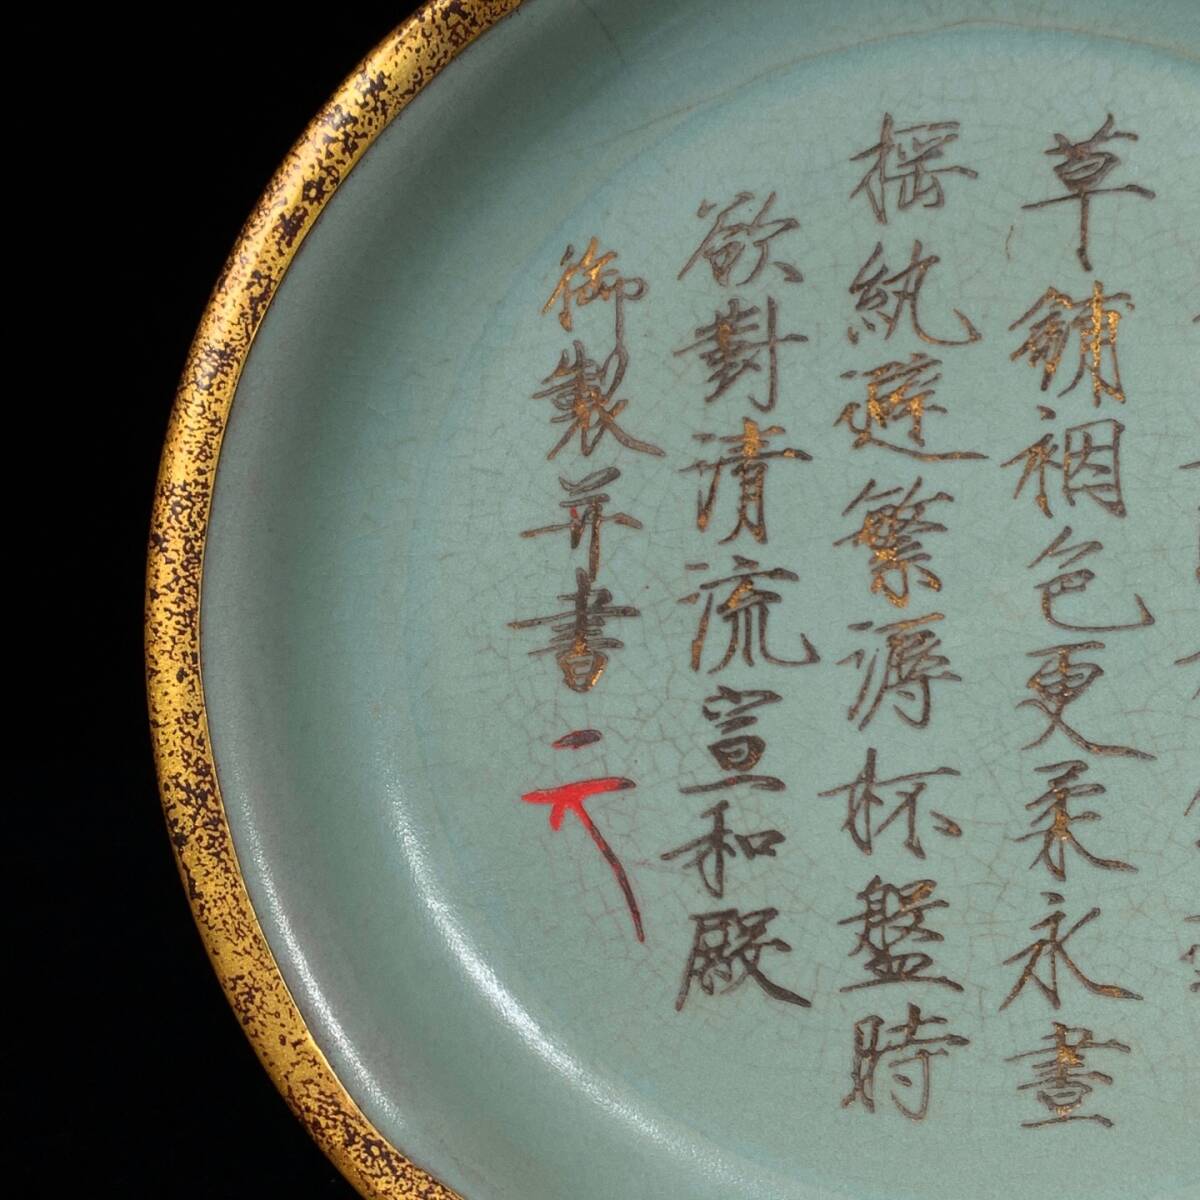 草舖裀色更柔永晝
搖紈避繁溽杯盤時
欲對清流宣和殿
御製并書